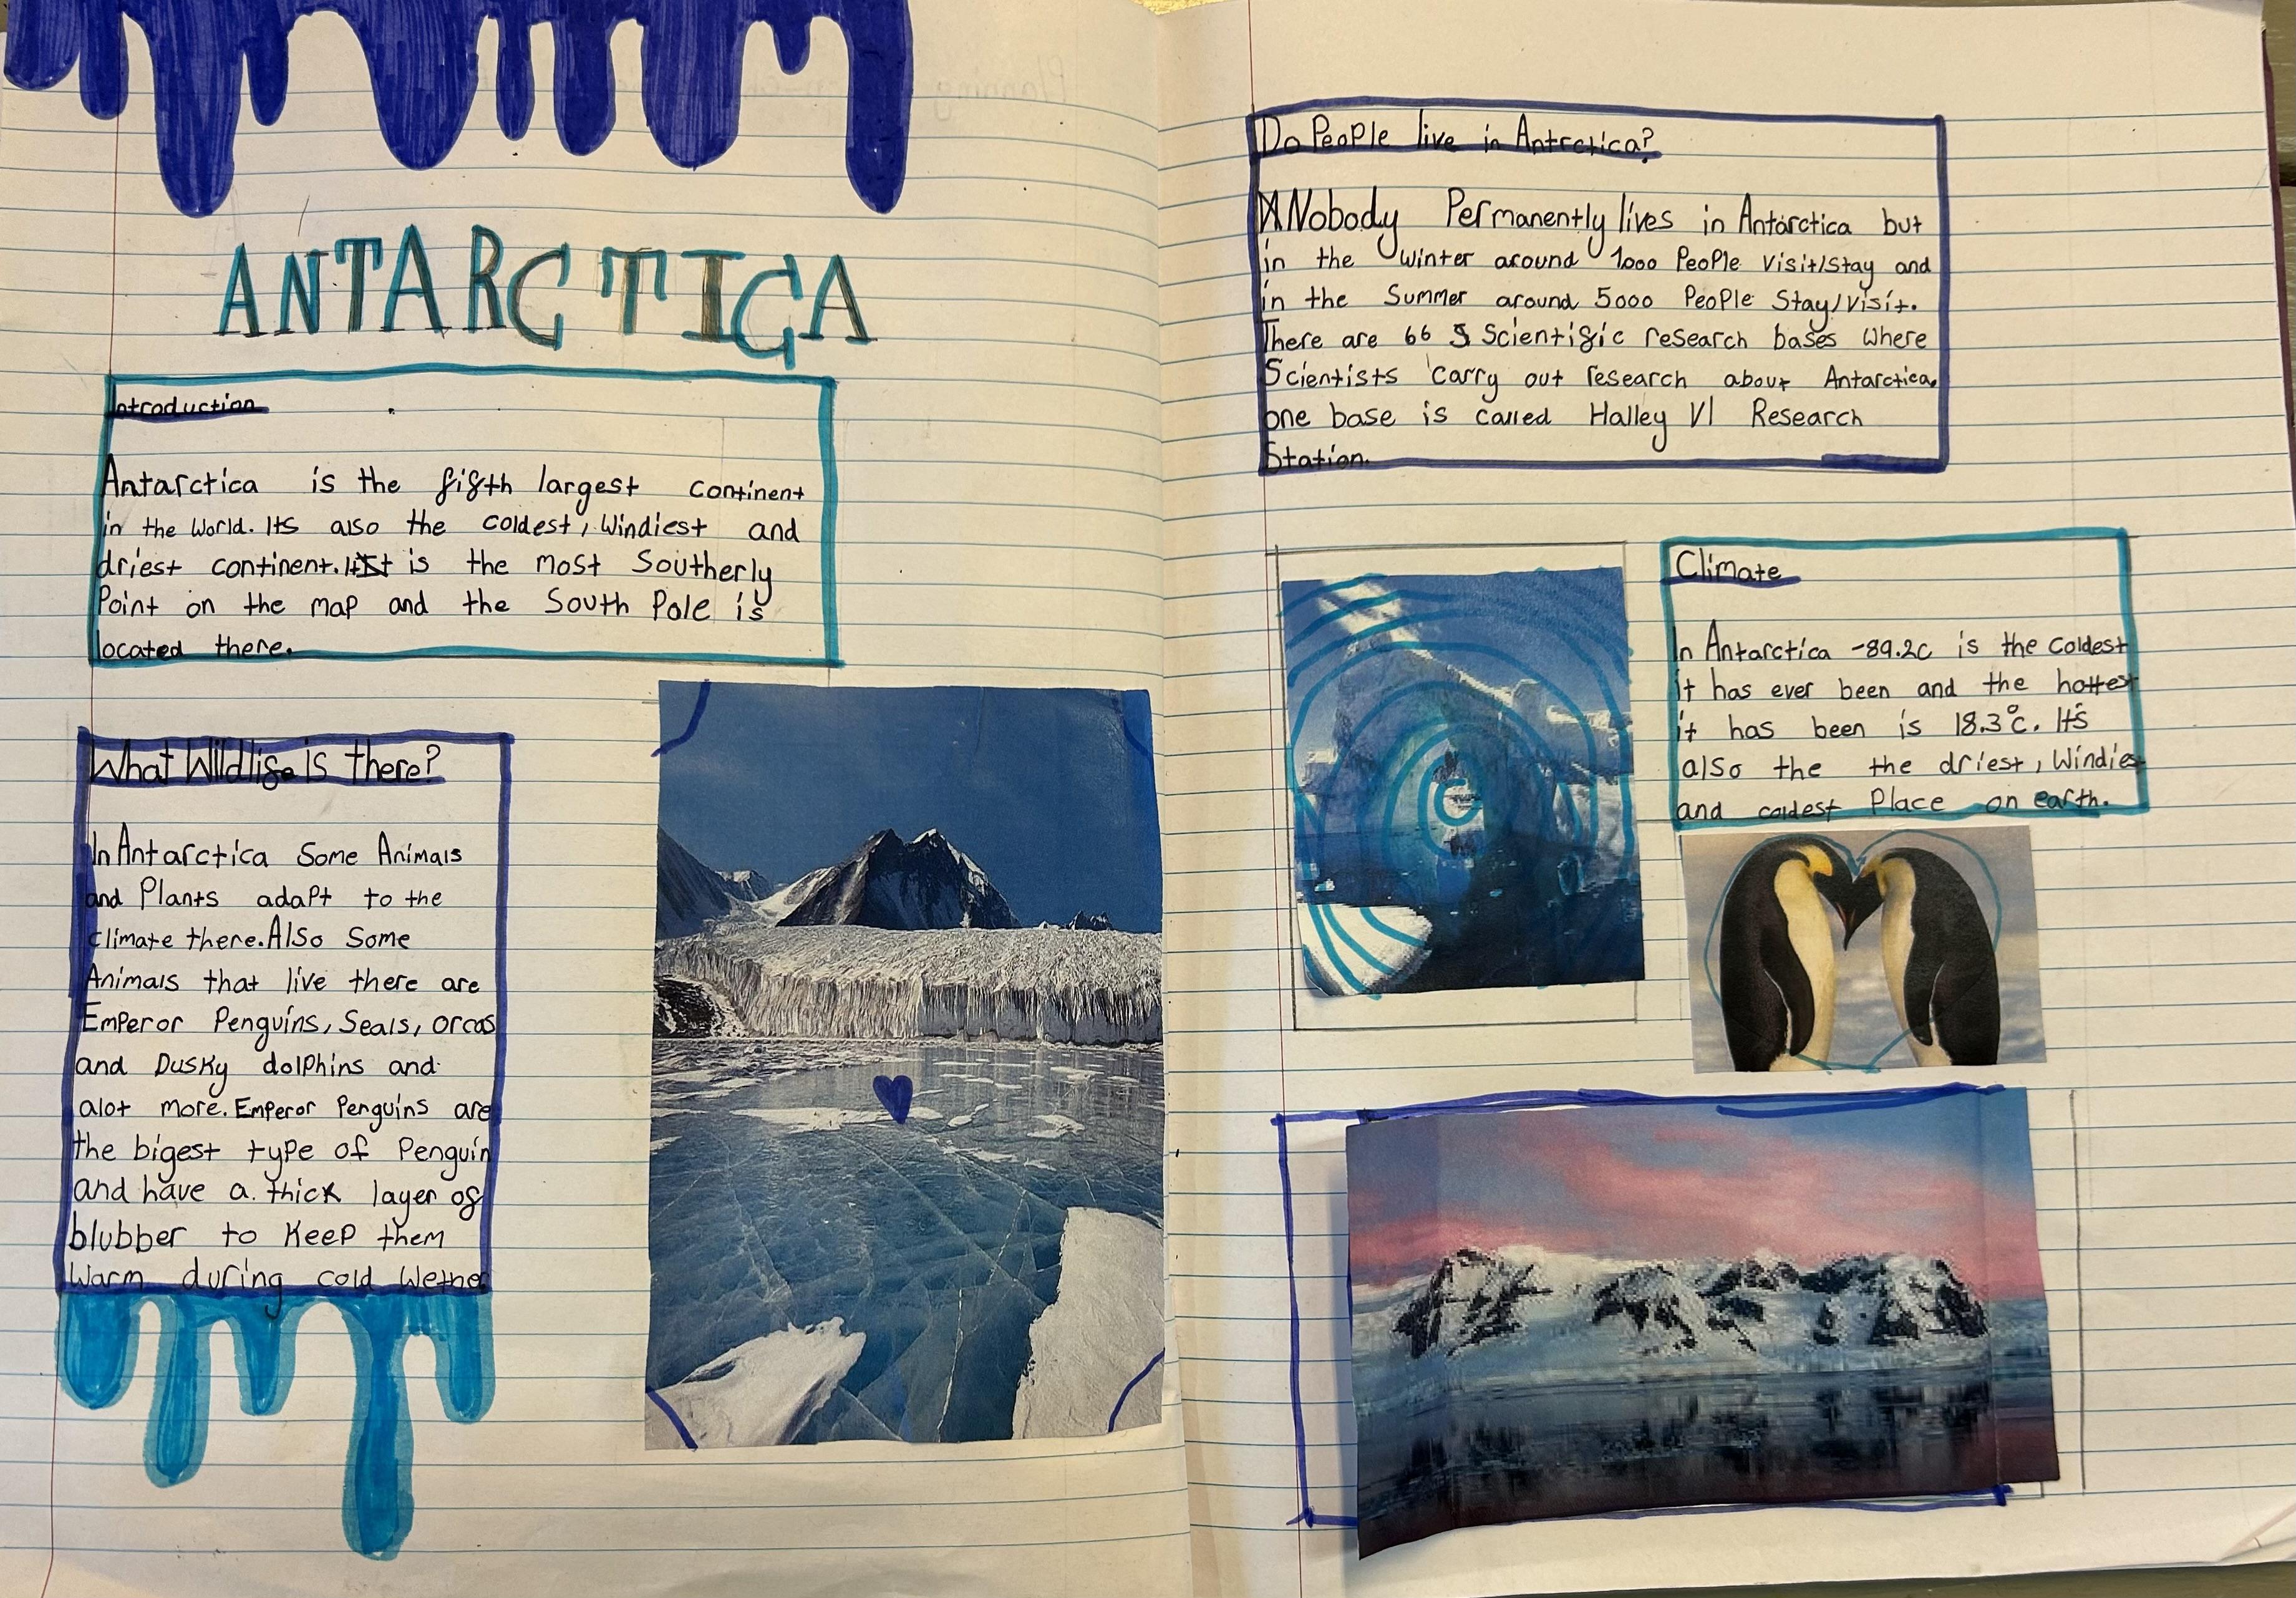 ANTARCTICA
Introduction
Antarctica is the fifth largest continent
in the World. Its also the coldest, Windiest and
driest continent. It is the most Southerly
Point on the map and the South Pole is
located there.
What Wildlife is there?
In Antarctica Some Animals
and Plants adapt to the
climate there. Also Some
Animals that live there are
Emperor Penguins, Seals, orcas
and Dusky dolphins and
alot more. Emperor Penguins are
the bigest type of Penguin
and have a thick layer of
blubber to Keep them
Warm during cold Wether
Do People live in Antrctica?
Nobody Permanently lives in Antarctica but
in the Winter around 1000 People Visit/Stay and
in the Summer around 5000 People Stay/Visit.
There are 66 Scientific research bases Where
Scientists Carry out research about Antarctica.
one base is called Halley VI Research
Station.
Climate
In Antarctica -89.2c is the Coldest
it has ever been and the hottest
it has been is 18.3°c. It's
also the the driest, Windiest
and coldest Place on earth.